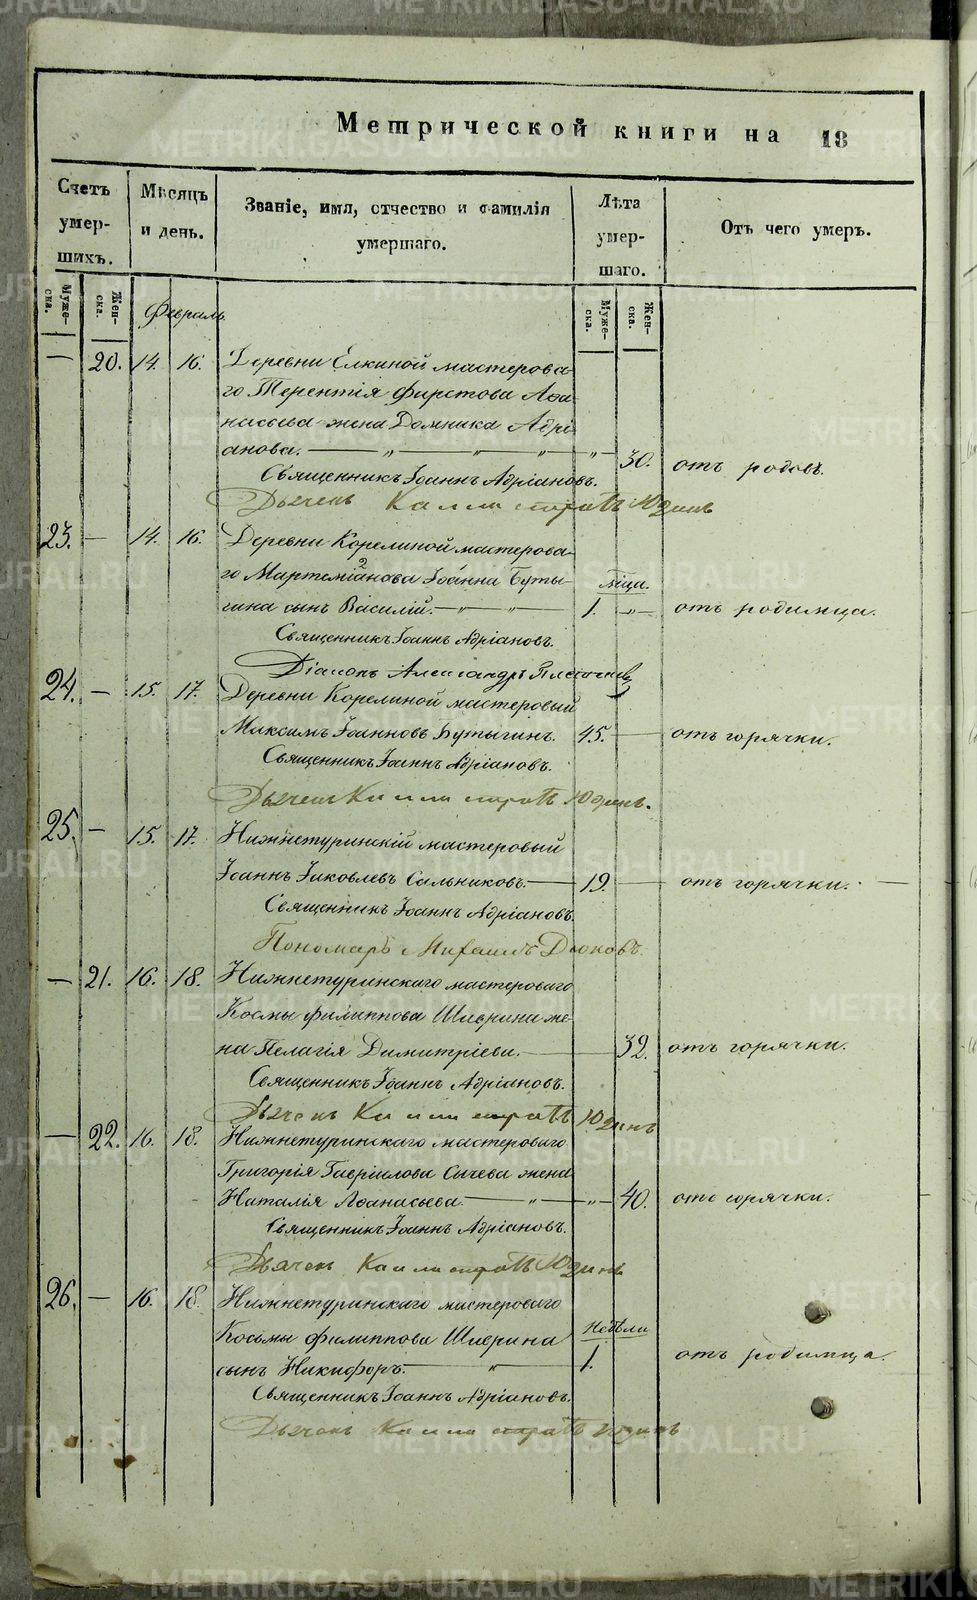 Метрической книги на 18
Счетъ умер- шихъ.
Мѣсяцъ и день.
Званіе, имя, отчество и фамилія умершаго.
Лѣта умер- шаго.
Отъ чего умеръ.
Муже- ска.
Жен- ска.
Февраль
Муже- ска.
Жен- ска.
— 20. 14. 16. Деревни Елкиной мастерова-
го Терентія Фирстова Аѳа-
насьева жена Домника Адрі-
анова. — „ — „ — „ — „ — 30. отъ родовъ.
Священникъ Іоаннъ Адріановъ.
Дьячекъ Каллистратъ Юдинъ
23. — 14. 16. Деревни Корелиной мастерова-
го Мартеміанова Іоанна Буты-
гина сынъ Василій. — „ — „ — мѣца. 1. „ — отъ родимца.
Священникъ Іоаннъ Адріановъ.
Діаконъ Александръ
24. — 15. 17. Деревни Корелиной мастеровый
Максимъ Іоанновъ Бутыгинъ. 45. — отъ горячки.
Священникъ Іоаннъ Адріановъ.
Дьячекъ Каллистратъ Юдинъ.
25. — 15. 17. Нижнетуринскій мастеровый
Іоаннъ Іаковлевъ Сальниковъ. — 19. — отъ горячки. —
Священникъ Іоаннъ Адріановъ.
Пономарь Михаилъ Дюковъ.
— 21. 16. 18. Нижнетуринскаго мастероваго
Космы Филиппова Шиврина же-
на Пелагія Димитріева. — 32. отъ горячки.
Священникъ Іоаннъ Адріановъ.
Дьячекъ Каллистратъ Юдинъ
— 22. 16. 18. Нижнетуринскаго мастероваго
Григорія Гавріилова Сычева жена
Наталія Аѳанасьева — „ — „ — 40. отъ горячки.
Священникъ Іоаннъ Адріановъ.
Дьячекъ Каллистратъ Юдинъ
26. — 16. 18. Нижнетуринскаго мастероваго
Косьмы Филиппова Шиврина
сынъ Никифоръ. — „ — недѣли 1. отъ родимца.
Священникъ Іоаннъ Адріановъ.
Дьячекъ Каллистратъ Юдинъ
METRIKI.GASO-URAL.RU